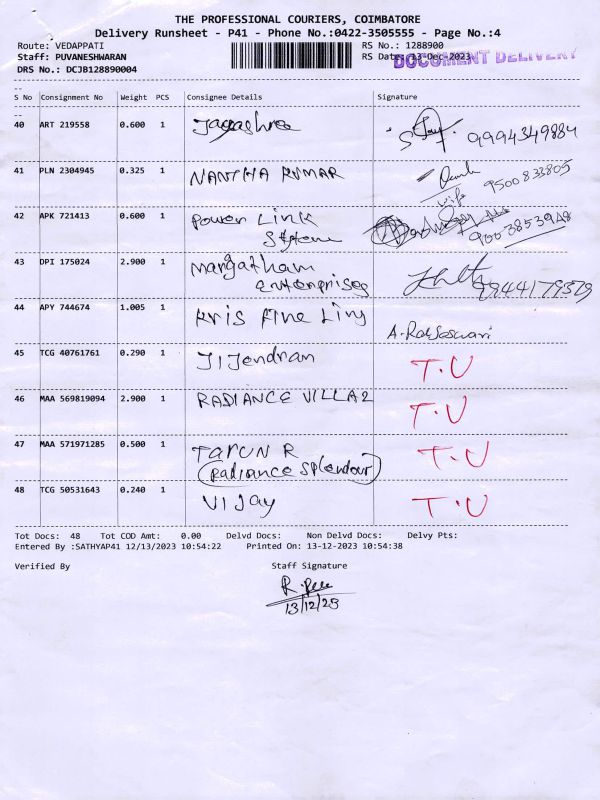 THE PROFESSIONAL COURIERS, COIMBATORE
Delivery Runsheet - P41 - Phone No.:0422-3505555 - Page No.:4
Route: VEDAPPATI RS No.: 1288900
Staff: PUVANESHWARAN RS Date: 13-Dec-2023
DOCUMENT DELIVERY
DRS No.: DCJB128890004
S No Consignment No Weight PCS Consignee Details Signature
40 ART 219558 0.600 1 Jayashree 9994349884
41 PLN 2304945 0.325 1 NANTHA KUMAR wife 9500833805
42 APK 721413 0.600 1 Power Link
System 9003853948
43 DPI 175024 2.900 1 Mangatham
enterprises 9944179579
44 APY 744674 1.005 1 Kris Fine Liny A. Rajeswari
45 TCG 40761761 0.290 1 Jijendran T.U
46 MAA 569819094 2.900 1 RADIANCE VILLA 2 T.U
47 MAA 571971285 0.500 1 TARUN R T.U
(Radiance Splendour)
48 TCG 50531643 0.240 1 Vijay T.U
Tot Docs: 48 Tot COD Amt: 0.00 Delvd Docs: Non Delvd Docs: Delvy Pts:
Entered By :SATHYAP41 12/13/2023 10:54:22 Printed On: 13-12-2023 10:54:38
Verified By Staff Signature
13/12/23